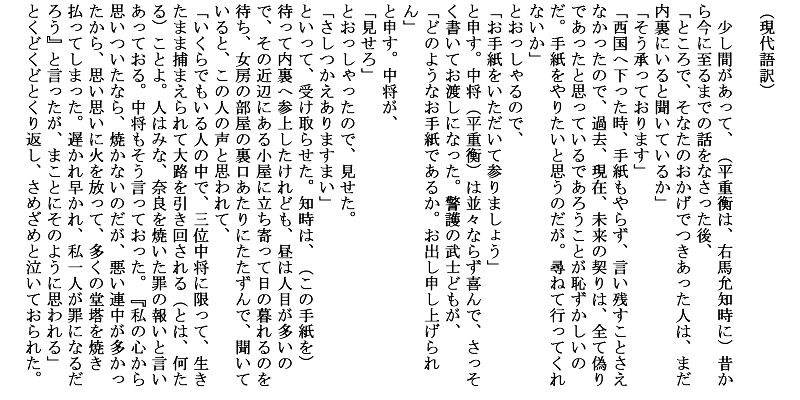 （現代語訳）
　少し間があって、（平重衡は、右馬允知時に）昔か
ら今に至るまでの話をなさった後、
「ところで、そなたのおかげでつきあった人は、まだ
内裏にいると聞いているか」
「そう承っております」
「西国へ下った時、手紙もやらず、言い残すことさえ
なかったので、過去、現在、未来の契りは、全て偽り
であったと思っているであろうことが恥ずかしいの
だ。手紙をやりたいと思うのだが。尋ねて行ってくれ
ないか」
とおっしゃるので、
「お手紙をいただいて参りましょう」
と申す。中将（平重衡）は並々ならず喜んで、さっそ
く書いてお渡しになった。警護の武士どもが、
「どのようなお手紙であるか。お出し申し上げられ
ん」
と申す。中将が、
「見せろ」
とおっしゃったので、見せた。
「さしつかえありますまい」
といって、受け取らせた。知時は、（この手紙を）
待って内裏へ参上したけれども、昼は人目が多いの
で、その近辺にある小屋に立ち寄って日の暮れるのを
待ち、女房の部屋の裏口あたりにたたずんで、聞いて
いると、この人の声と思われて、
「いくらでもいる人の中で、三位中将に限って、生き
たまま捕まえられて大路を引き回される（とは、何た
る）ことよ。人はみな、奈良を焼いた罪の報いと言い
あっておる。中将もそう言っておった。『私の心から
思いついたなら、焼かないのだが、悪い連中が多かっ
たから、思い思いに火を放って、多くの堂塔を焼き
払ってしまった。遅かれ早かれ、私一人が罪になるだ
ろう』と言ったが、まことにそのように思われる」
とくどくどとくり返し、さめざめと泣いておられた。